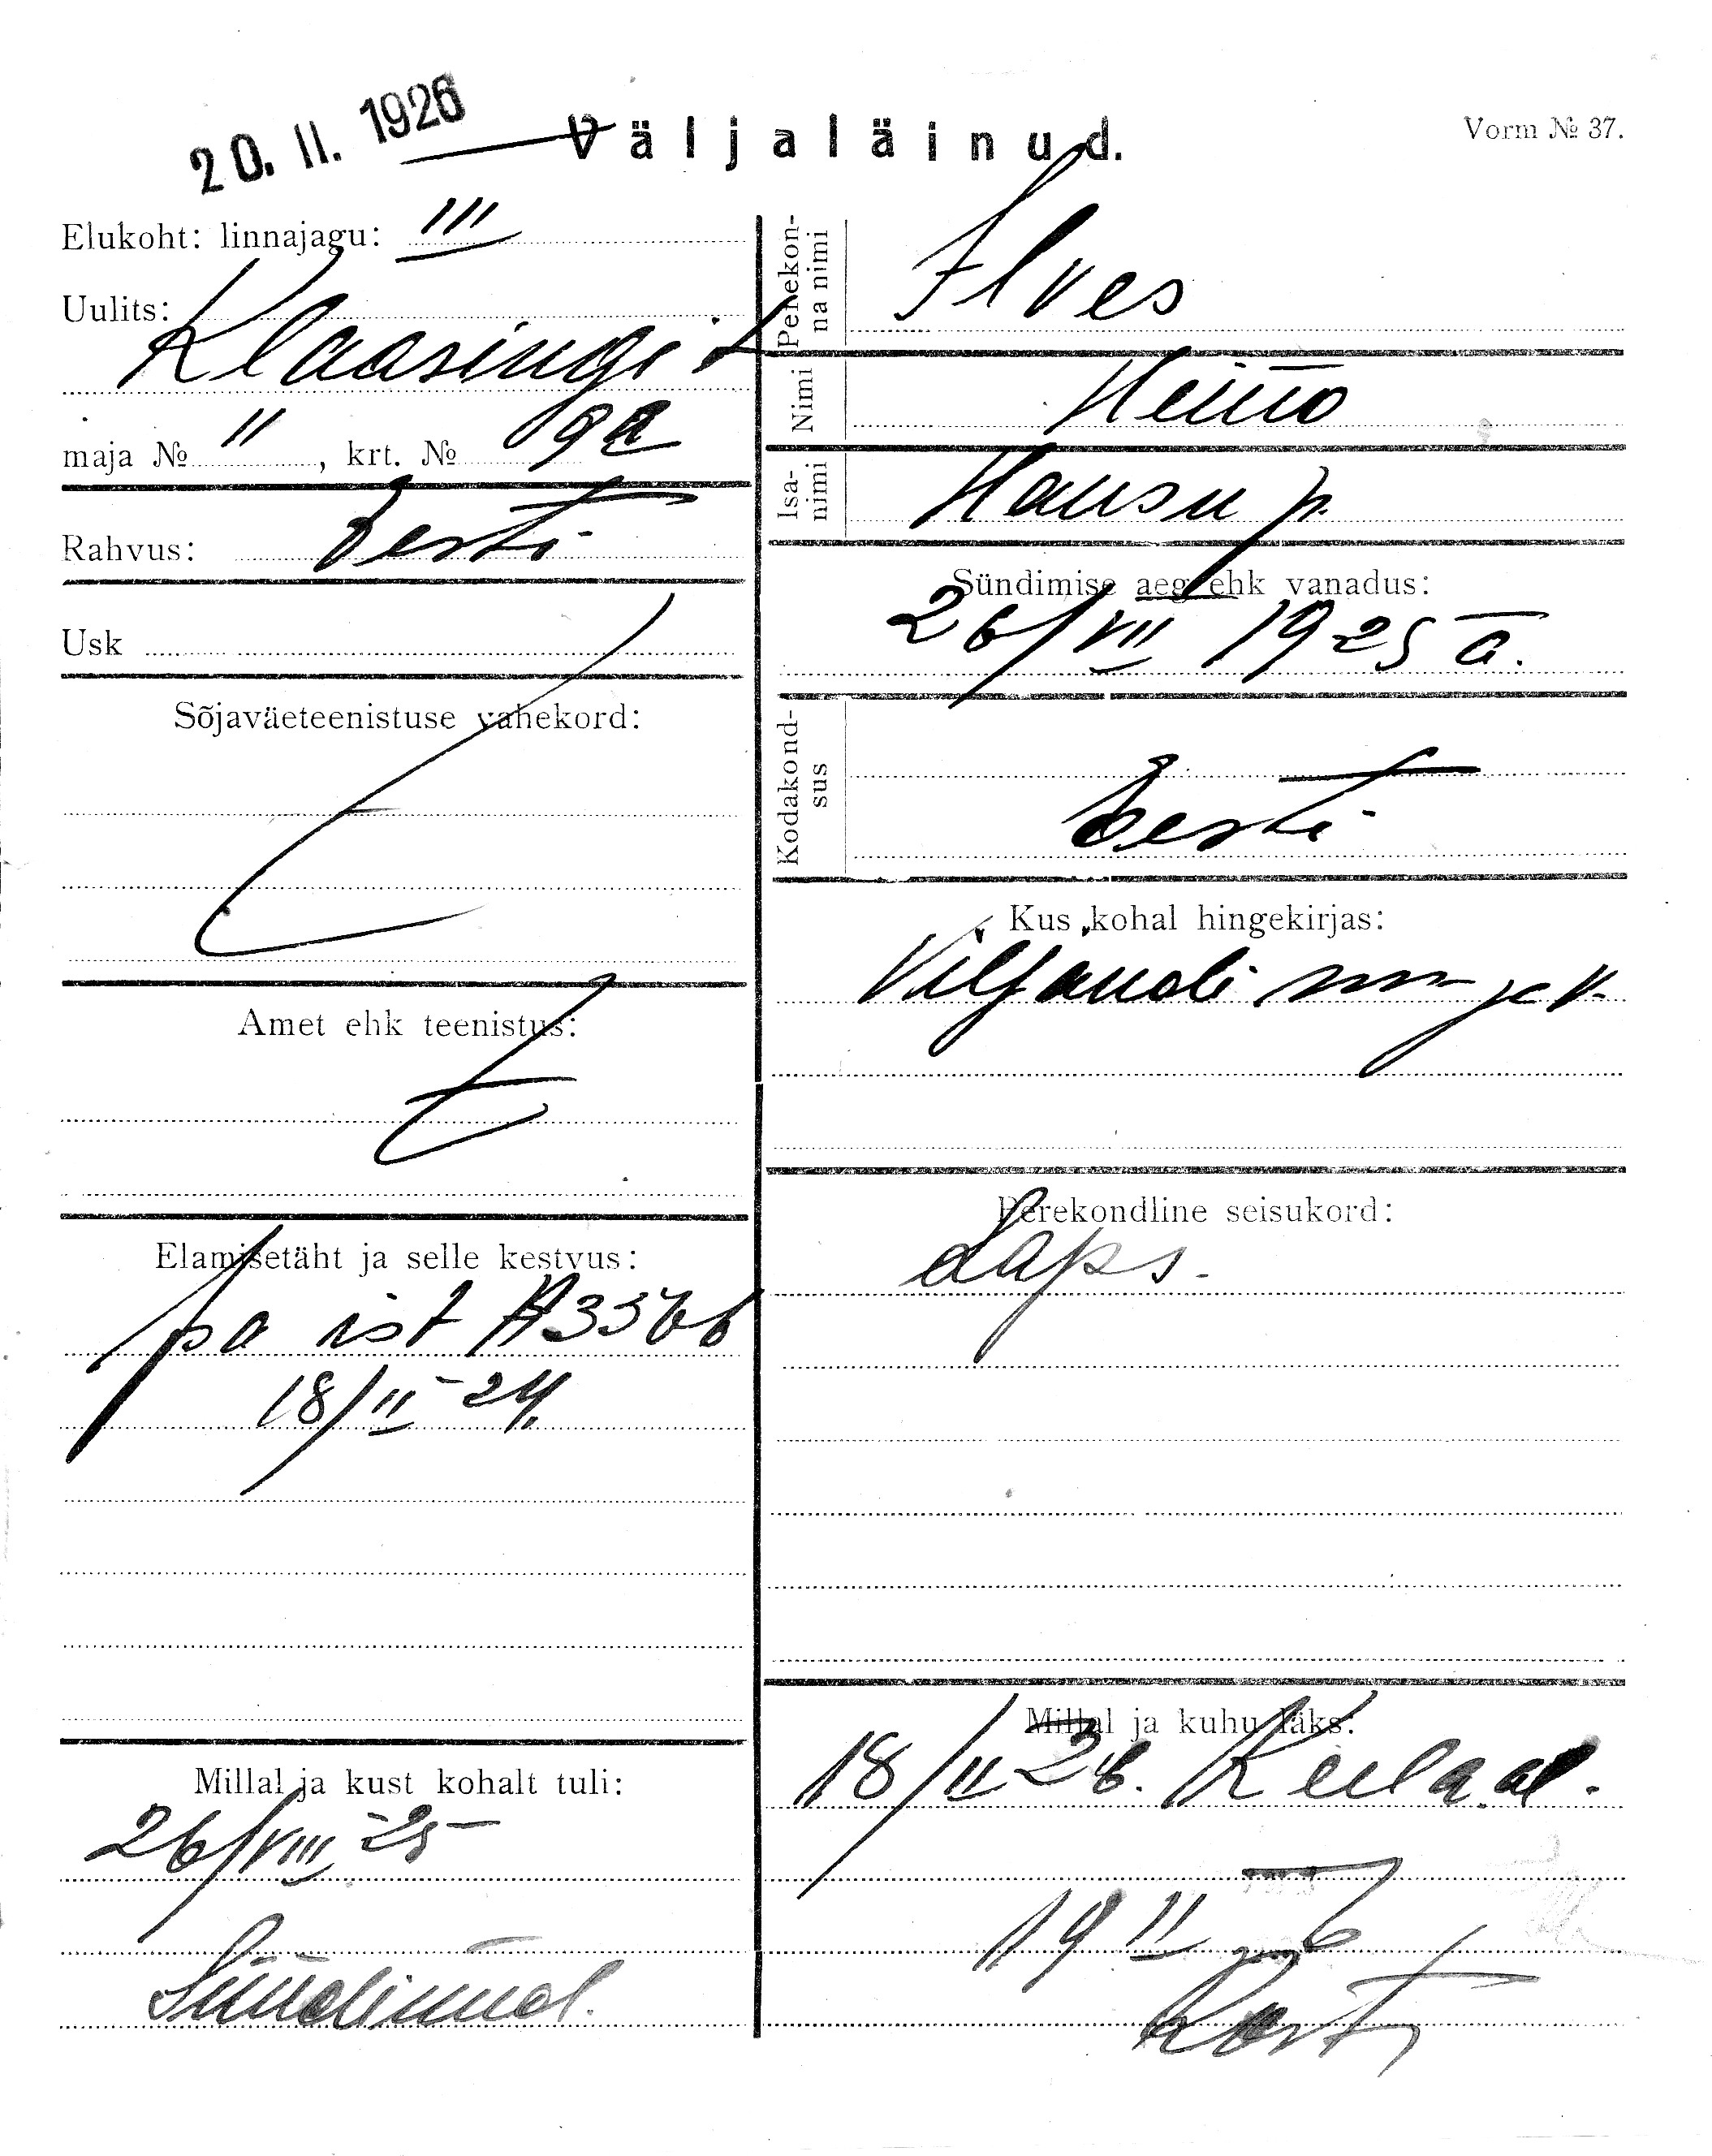 20. II. 1926
Väljaläinud.
Vorm № 37.
Elukoht: linnajagu: III
Uulits:
Klaasingi t
maja № 11, krt. № 9a
Rahvus: Eesti
Usk
Sõjaväeteenistuse vahekord:
Amet ehk teenistus:
Elamisetäht ja selle kestvus:
18/II-24.
Millal ja kust kohalt tuli:
26/VIII-25
Sündinud.
Perekonna nimi
Ilves
Nimi
Heino
Isanimi
Hansu p.
Sündimise aeg ehk vanadus:
26/VII 1925 a.
Kodakondsus
Eesti
Kus kohal hingekirjas:
Viljandi
Perekondline seisukord:
Laps.
Millal ja kuhu läks:
18/II 26. Keila al.
19 II 26